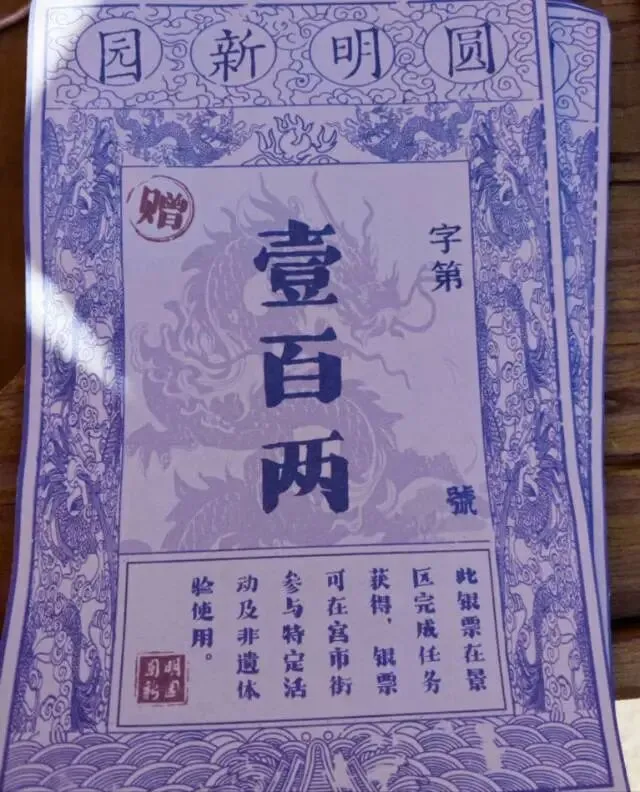 圆明新园
字第
號
壹百两
赠
此银票在景
区完成任务
获得，银票
可在宫市街
参与特定活
动及非遗体
验使用。
圆明
新园